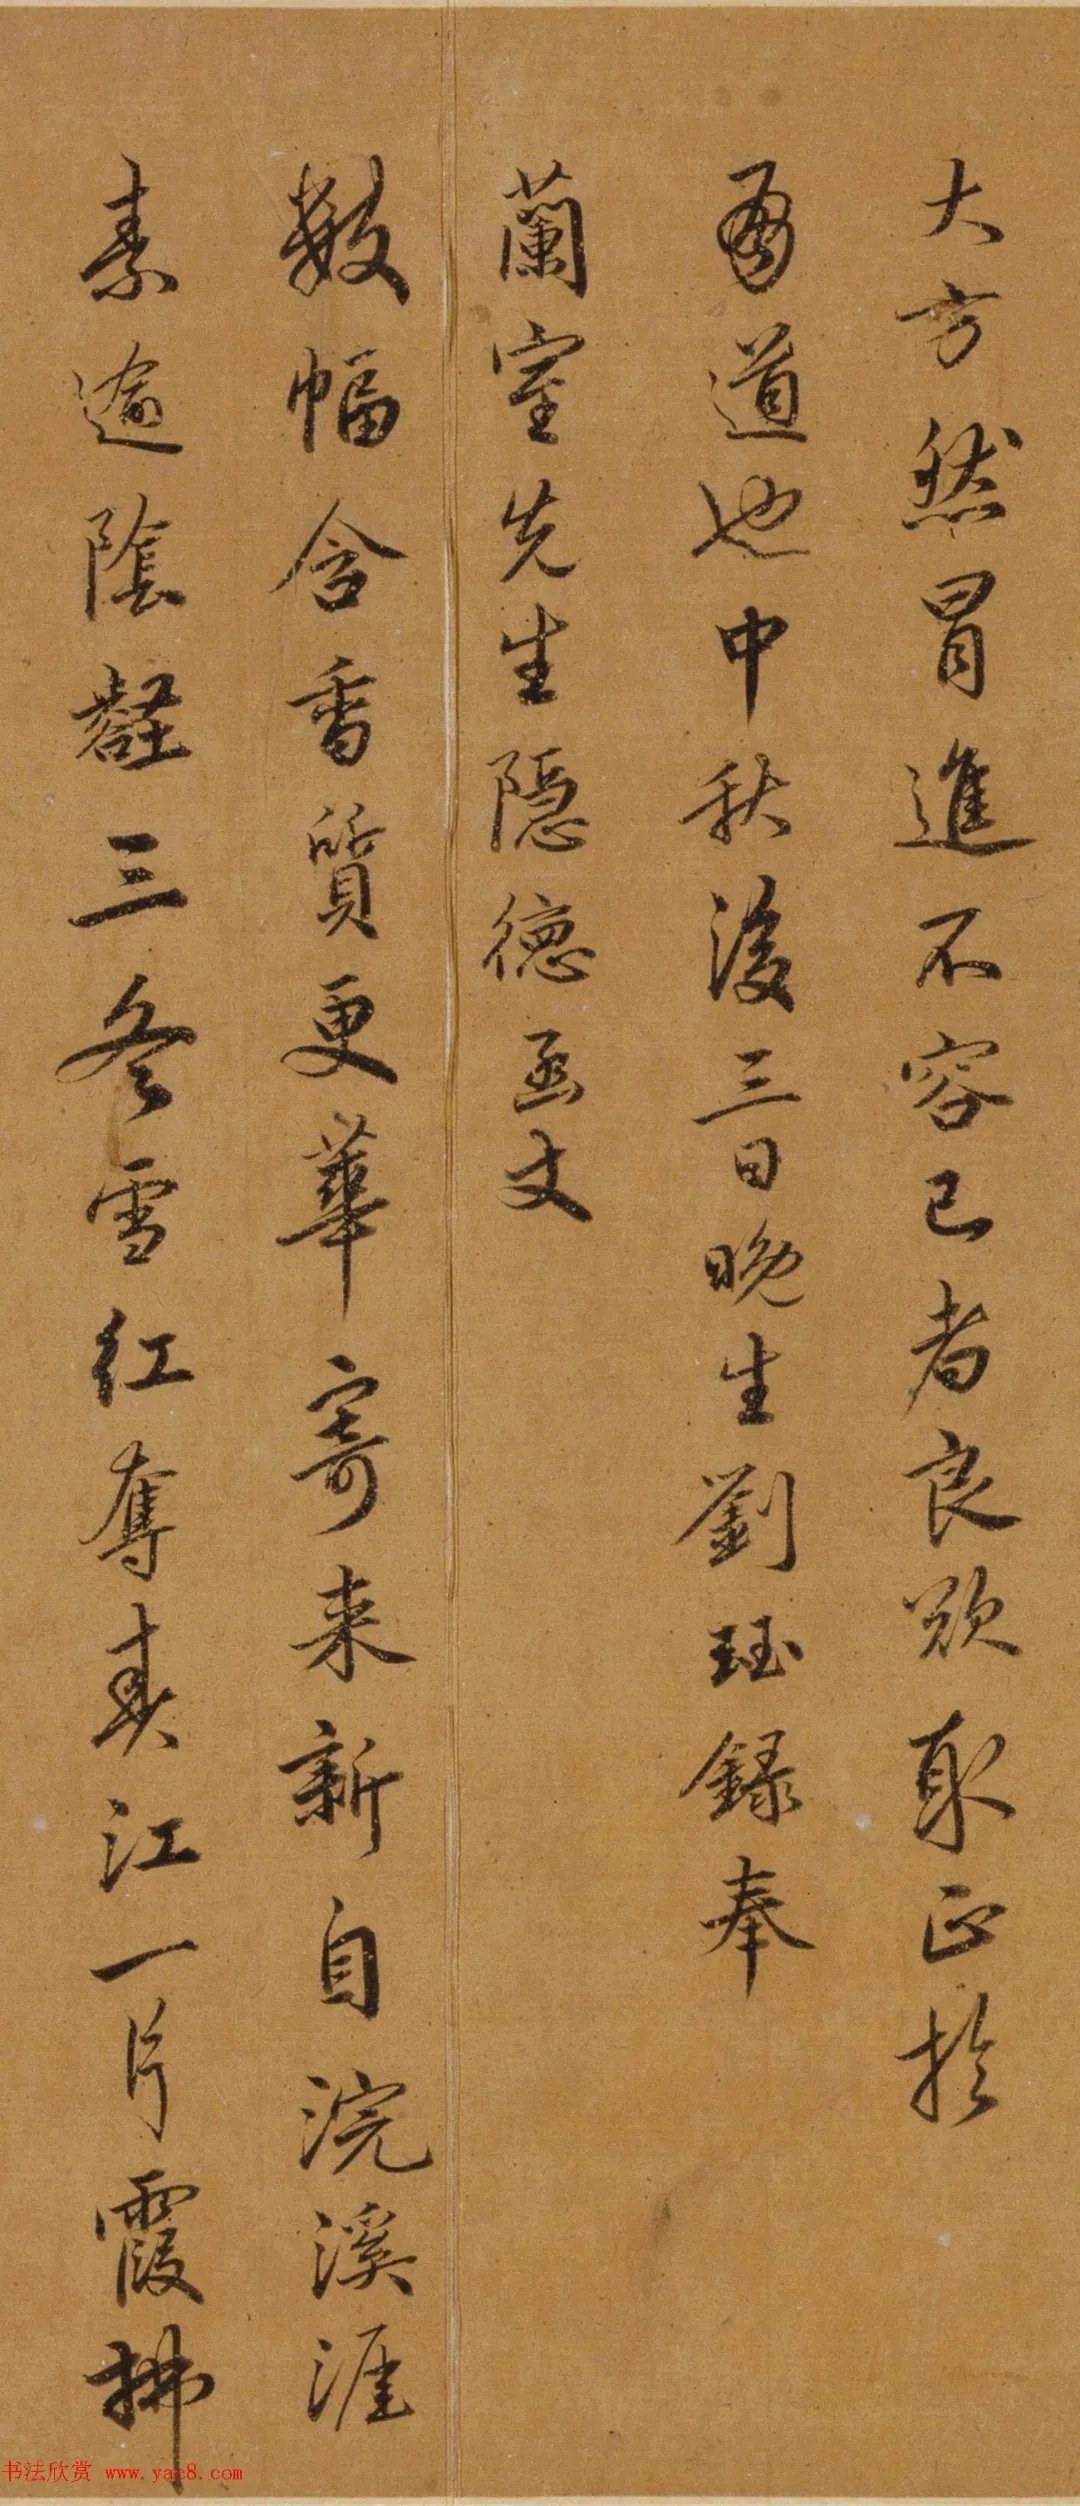 大方然冒進不容已者良欲取正於
吾道也中秋後三日晚生劉珏録奉
蘭室先生隱德函丈
數幅含香質更華寄来新自浣溪涯
素逾陰壑三冬雪紅奪春江一片霞拂
书法欣赏 www.yac8.com